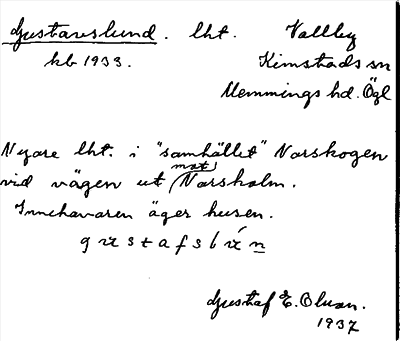 Gustavslund. lht. Vallby
kb 1933. Kimstads sn
Memmings hd. Ögl
Nyare lht. i "samhället" Norskogen
vid vägen ut mot Norsholm.
Innehavaren äger husen.
Gustaf E. Olsson.
1937